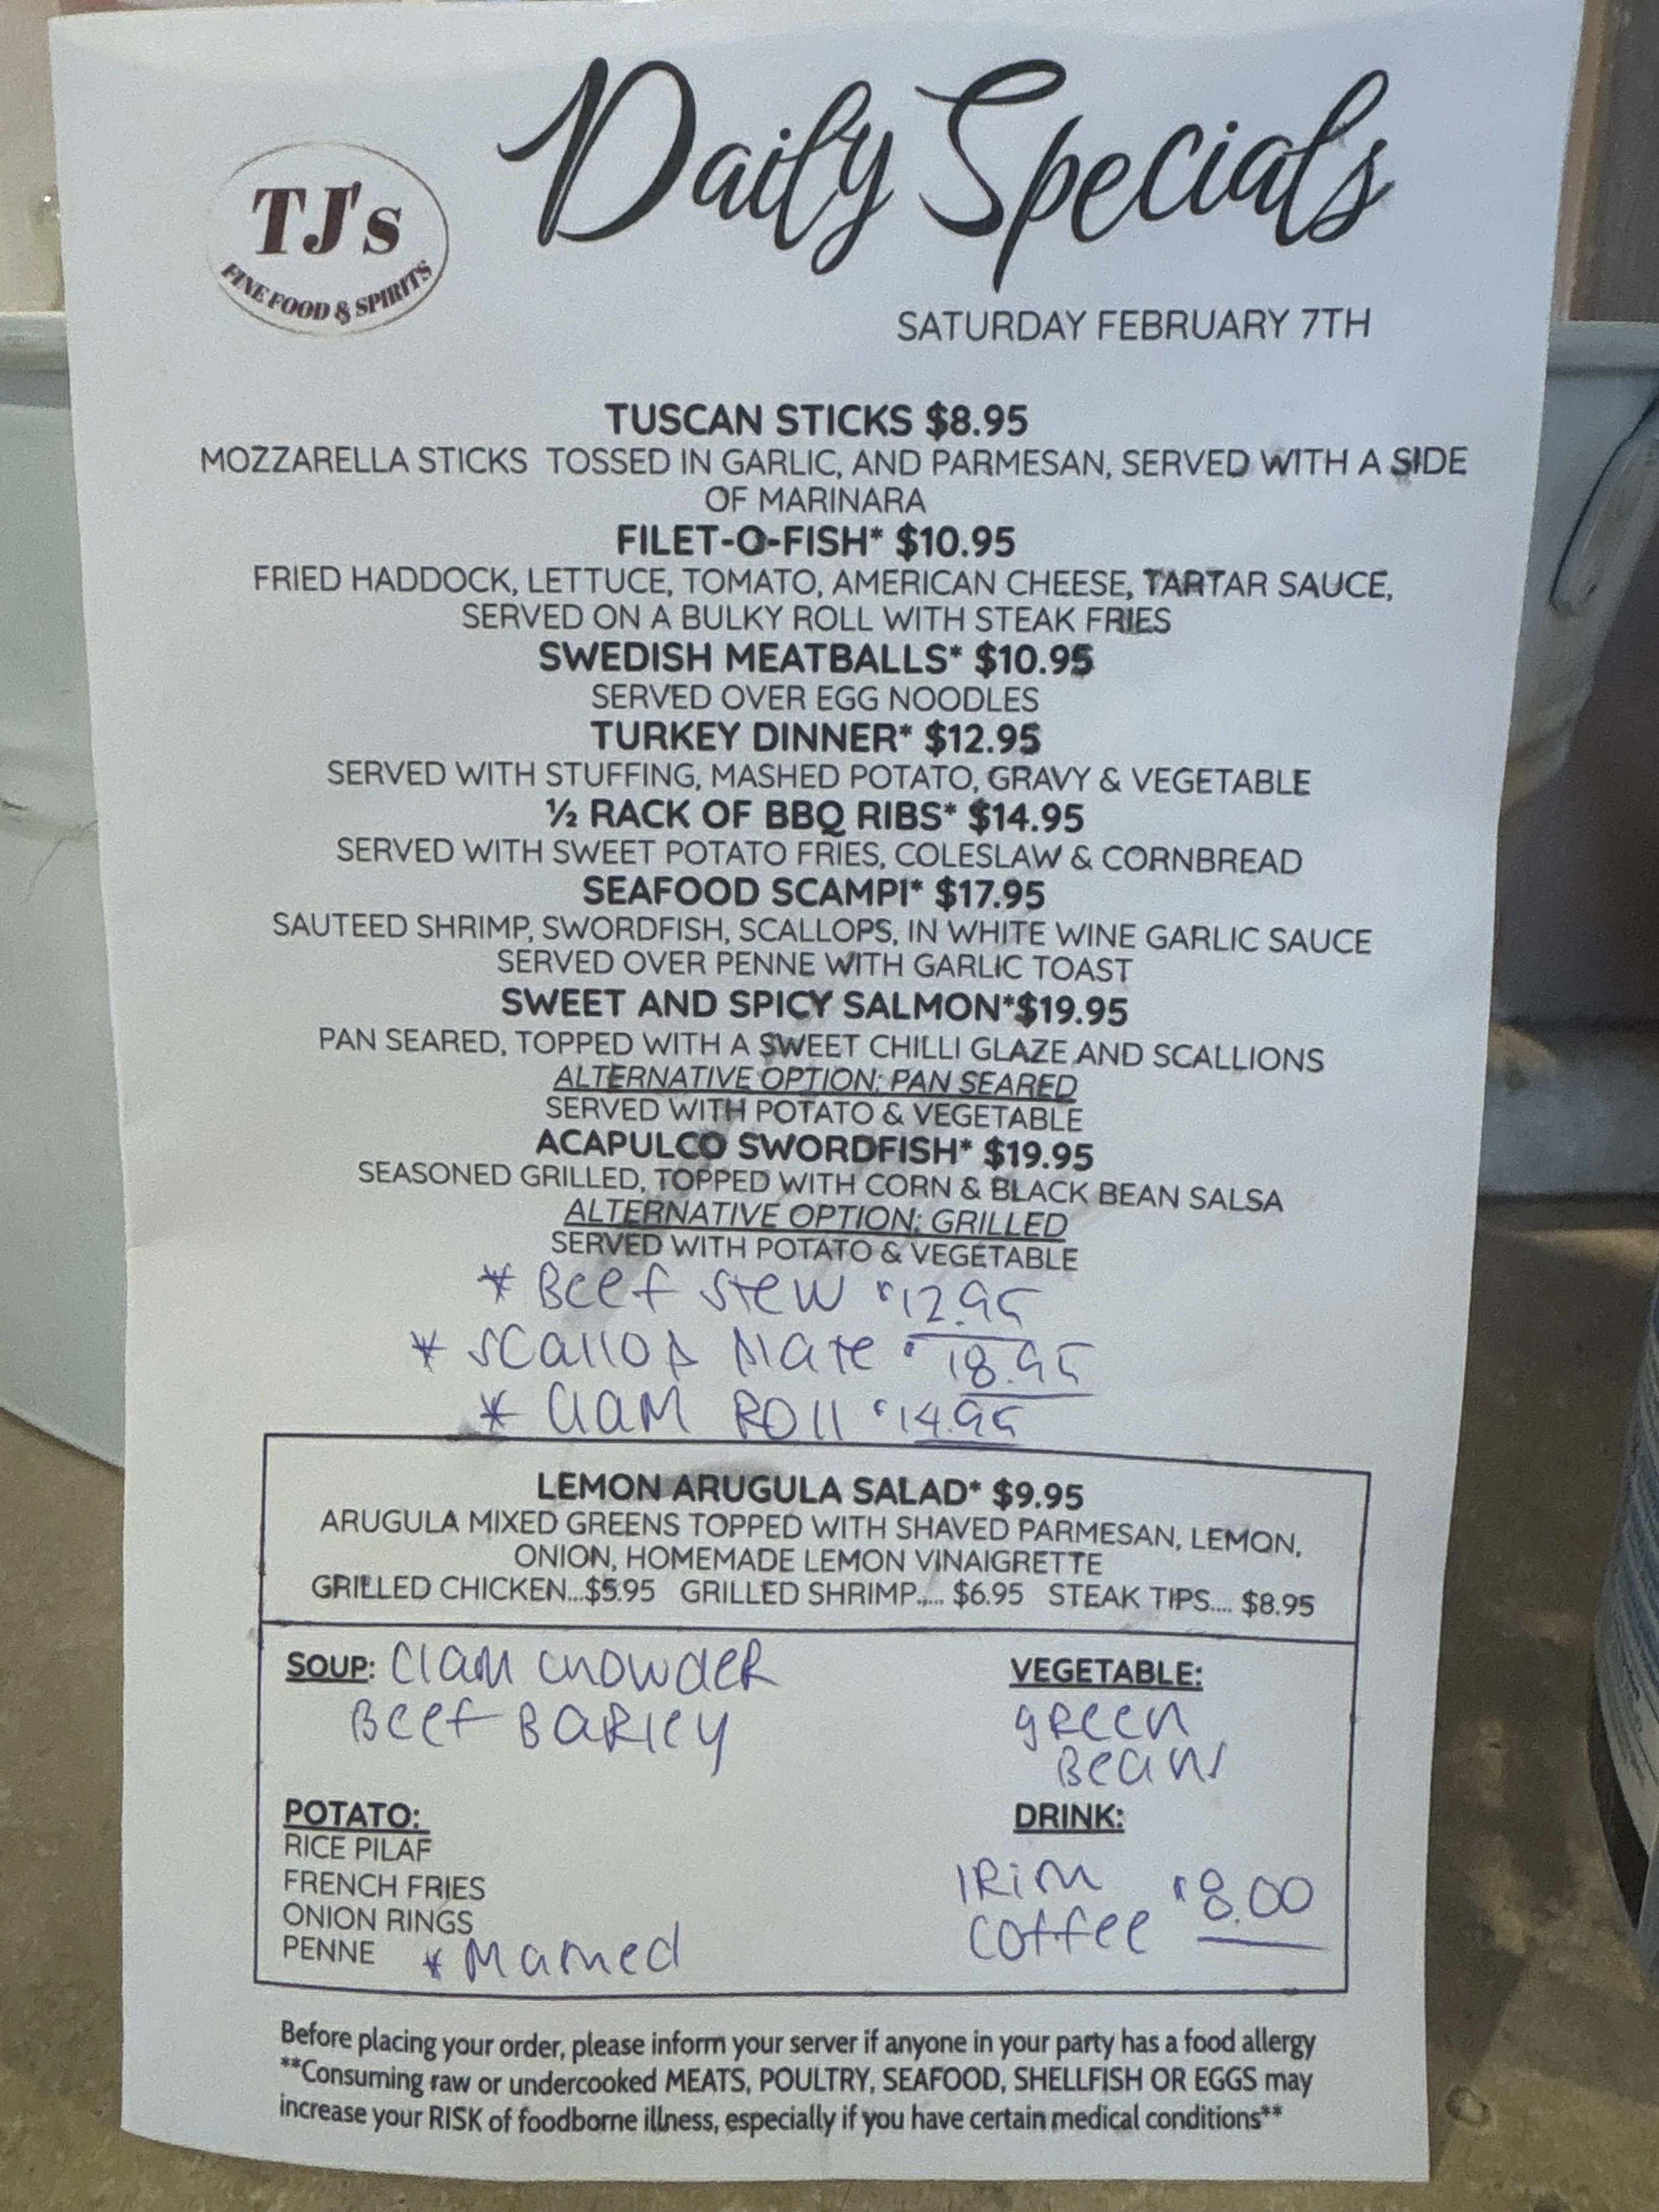 TJ's
FINE FOOD & SPIRITS
Daily Specials
SATURDAY FEBRUARY 7TH
TUSCAN STICKS $8.95
MOZZARELLA STICKS TOSSED IN GARLIC, AND PARMESAN, SERVED WITH A SIDE
OF MARINARA
FILET-O-FISH* $10.95
FRIED HADDOCK, LETTUCE, TOMATO, AMERICAN CHEESE, TARTAR SAUCE,
SERVED ON A BULKY ROLL WITH STEAK FRIES
SWEDISH MEATBALLS* $10.95
SERVED OVER EGG NOODLES
TURKEY DINNER* $12.95
SERVED WITH STUFFING, MASHED POTATO, GRAVY & VEGETABLE
½ RACK OF BBQ RIBS* $14.95
SERVED WITH SWEET POTATO FRIES, COLESLAW & CORNBREAD
SEAFOOD SCAMPI* $17.95
SAUTEED SHRIMP, SWORDFISH, SCALLOPS, IN WHITE WINE GARLIC SAUCE
SERVED OVER PENNE WITH GARLIC TOAST
SWEET AND SPICY SALMON*$19.95
PAN SEARED, TOPPED WITH A SWEET CHILLI GLAZE AND SCALLIONS
ALTERNATIVE OPTION: PAN SEARED
SERVED WITH POTATO & VEGETABLE
ACAPULCO SWORDFISH* $19.95
SEASONED GRILLED, TOPPED WITH CORN & BLACK BEAN SALSA
ALTERNATIVE OPTION: GRILLED
SERVED WITH POTATO & VEGETABLE
* Beef Stew $12.95
* Scallop Plate $18.95
* Clam Roll $14.95
LEMON ARUGULA SALAD* $9.95
ARUGULA MIXED GREENS TOPPED WITH SHAVED PARMESAN, LEMON,
ONION, HOMEMADE LEMON VINAIGRETTE
GRILLED CHICKEN...$5.95 GRILLED SHRIMP..... $6.95 STEAK TIPS.... $8.95
SOUP: Clam Chowder
Beef Barley
VEGETABLE:
Green
Beans
POTATO:
RICE PILAF
FRENCH FRIES
ONION RINGS
PENNE * Mashed
DRINK:
Irish
Coffee $8.00
Before placing your order, please inform your server if anyone in your party has a food allergy
**Consuming raw or undercooked MEATS, POULTRY, SEAFOOD, SHELLFISH OR EGGS may
increase your RISK of foodborne illness, especially if you have certain medical conditions**